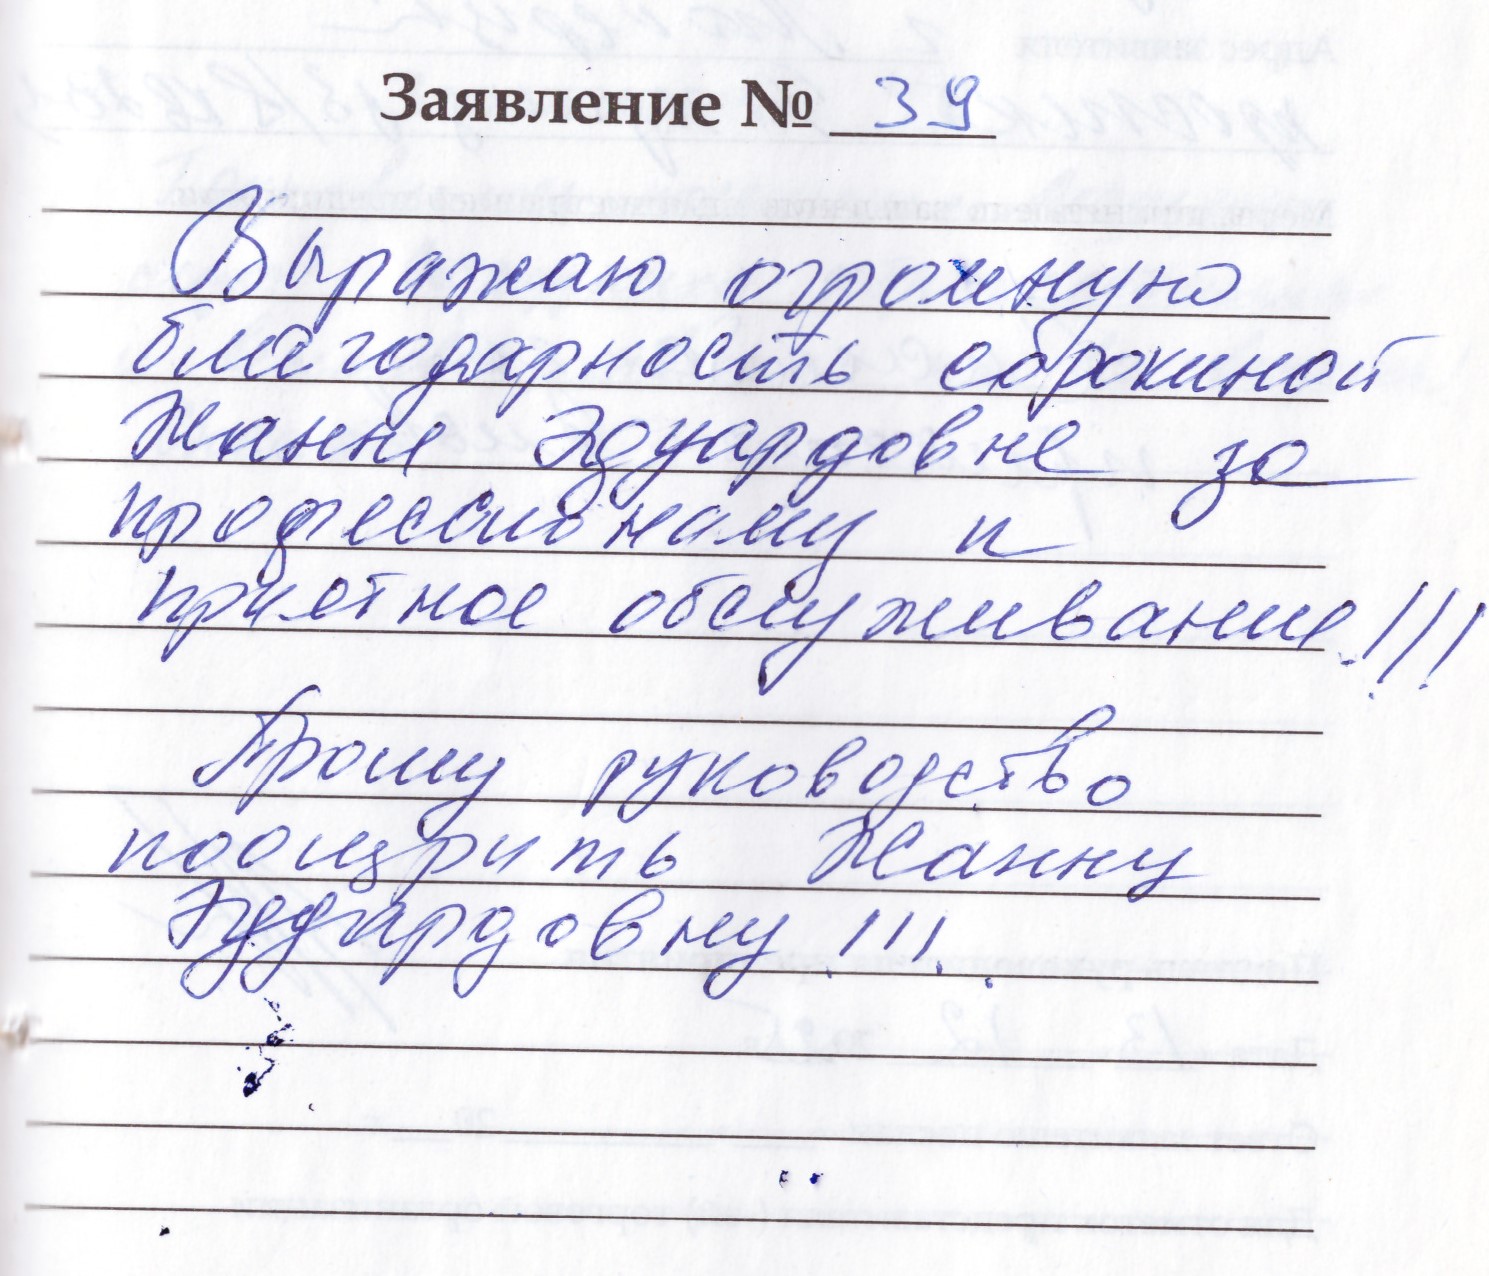 Заявление № 39
Выражаю огромную
благодарность сорокиной
Жанне Эдуардовне за
профессионализм и
приятное обслуживание!!!
Прошу руководство
поощрить Жанну
Эдуардовну!!!